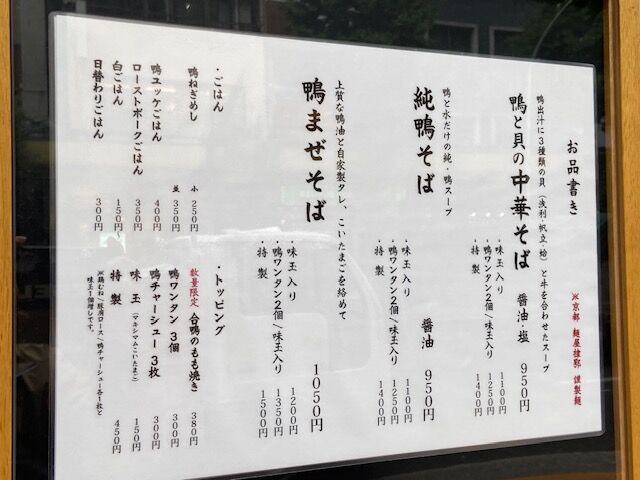 お品書き
※京都 麺屋棣鄂 謹製麺
鴨出汁に3種類の貝(浅利・帆立・蛤)と牛を合わせたスープ
鴨と貝の中華そば 醤油・塩 950円
・味玉入り 1100円
・鴨ワンタン2個/味玉入り 1250円
・特製 1400円
鴨と水だけの純・鴨スープ
純鴨そば 醤油 950円
・味玉入り 1100円
・鴨ワンタン2個/味玉入り 1250円
・特製 1400円
上質な鴨油と自家製タレ、こいたまごを絡めて
鴨まぜそば 1050円
・味玉入り 1200円
・鴨ワンタン2個/味玉入り 1350円
・特製 1500円
・ごはん
鴨ねぎめし 小 250円
並 350円
鴨ユッケごはん 400円
ローストポークごはん 350円
白ごはん 150円
日替わりごはん 300円
・トッピング
数量限定 合鴨のもも焼き 380円
鴨ワンタン 3個 300円
鴨チャーシュー3枚 300円
味玉(マキシマムこいたまご) 150円
特製 450円
※鶏むね/豚肩ロース/鴨チャーシュー各1枚と
味玉1個増しです。